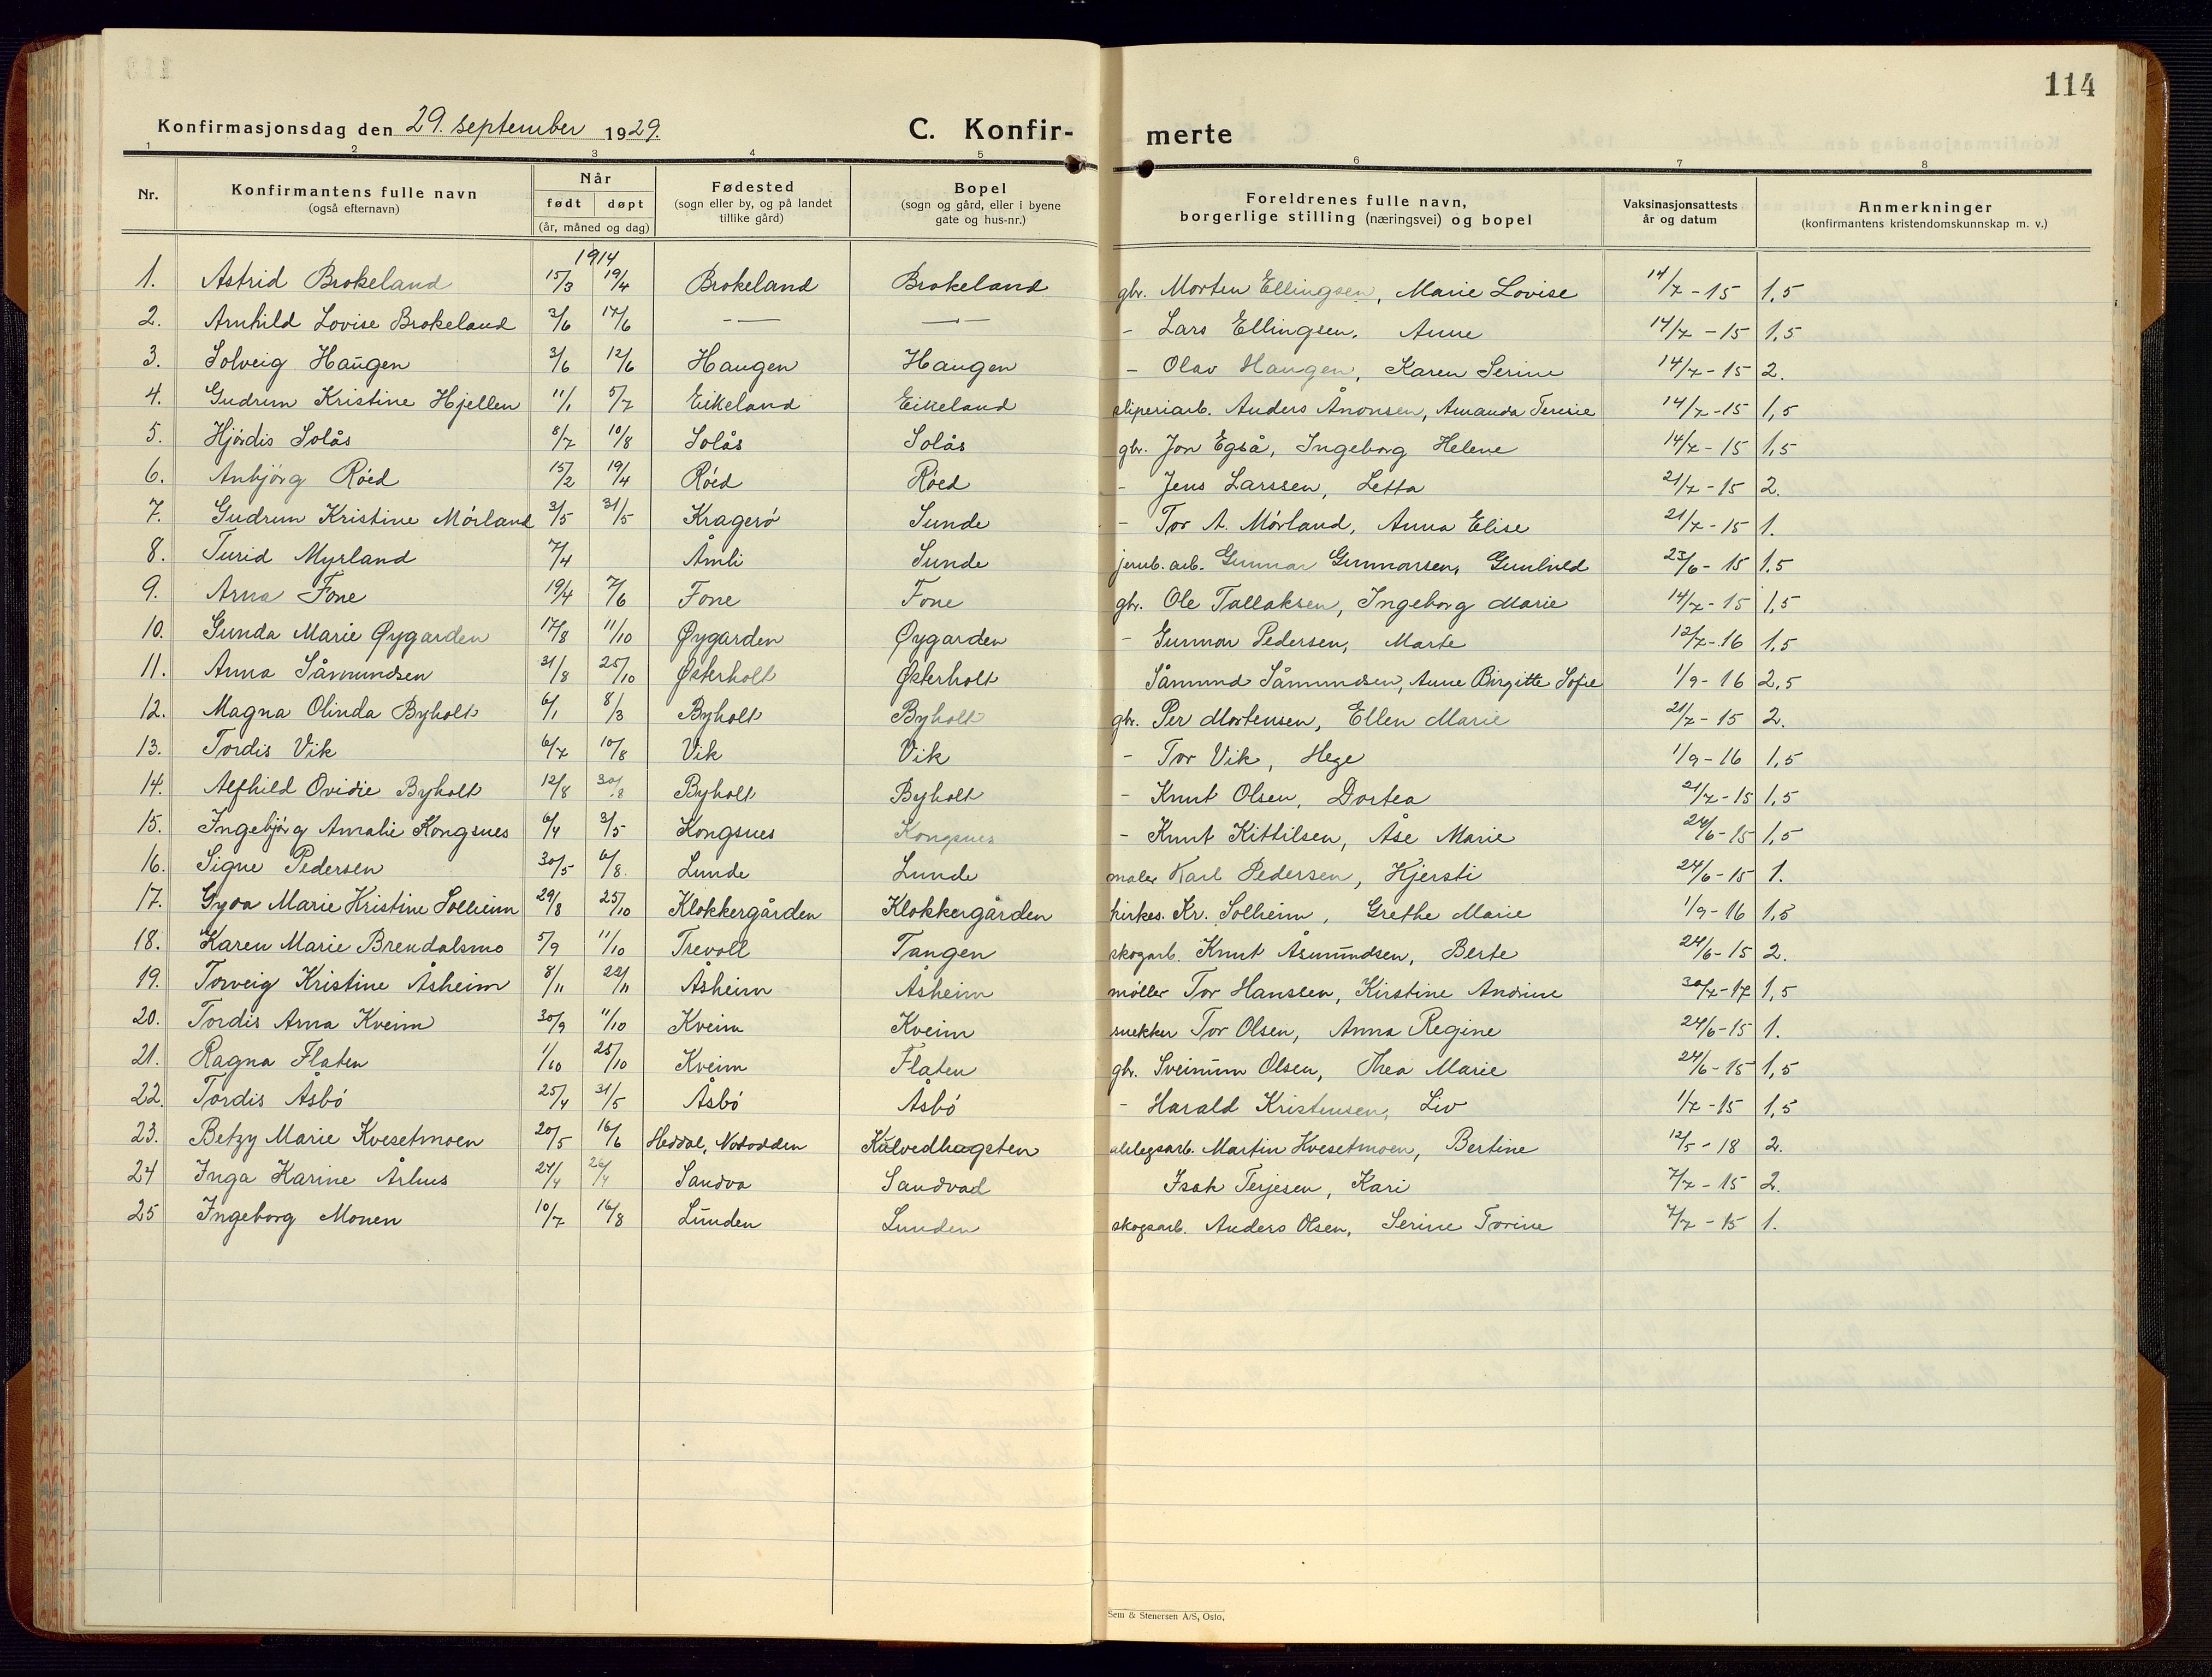 114
Konfirmasjonsdag den 29. september 1929. C. Konfir- merte
1 2 3 4 5 6 7 8
Nr. Konfirmantens fulle navn (også efternavn) Når født døpt (år, måned og dag) Fødested (sogn eller by, og på landet tillike gård) Bopel (sogn og gård, eller i byene gate og hus-nr.) Foreldrenes fulle navn, borgerlige stilling (næringsvei) og bopel Vaksinasjonsattests år og datum Anmerkninger (konfirmantens kristendomskunnskap m. v.)
1914
1. Astrid Brokeland 15/3 19/4 Brokeland Brokeland gbr. Morten Ellingsen, Marie Lovise 14/7 - 15 1,5
2. Arnhild Lovise Brokeland 3/6 14/6 - — — - Lars Ellingsen, Anne 14/7 - 15 1,5
3. Solveig Haugen 3/6 12/6 Haugen Haugen - Olav Haugen, Karen Serine 14/7 - 15 2.
4. Gudrun Kristine Hjellen 11/1 5/7 Eikeland Eikeland sliperiarb. Anders Ånonsen, Amanda Teresie 14/7 - 15 1,5
5. Hjördis Solås 8/7 10/8 Solås Solås gbr. Jon Egså, Ingeborg Helene 14/7 - 15 1,5
6. Anbjörg Röed 15/2 19/4 Röed Röed - Jens Larssen, Letta 21/7 - 15 2.
7. Gudrun Kristine Mörland 3/5 31/5 Kragerö Sunde - Tor A. Mörland, Anna Elise 21/7 - 15 1.
8. Turid Myrland 7/4 Åmli Sunde jernb. arb. Gunnar Gunnarsen, Gunhild 23/6 - 15 1,5
9. Arna Fone 19/4 7/6 Fone Fone gbr. Ole Tallaksen, Ingeborg Marie 14/7 - 15 1,5
10. Gunda Marie Øygarden 17/8 11/10 Øygarden Øygarden - Gunnar Pedersen, Marte 12/7 - 16 1,5
11. Anna Såmundsen 31/8 25/10 Østerholt Østerholt Såmund Såmundsen, Anne Birgitte Sofie 1/9 - 16 2,5
12. Magna Olinda Byholt 6/1 8/3 Byholt Byholt gbr. Per Mortensen, Ellen Marie 21/7 - 15 2.
13. Tordis Vik 6/7 10/8 Vik Vik - Tor Vik, Hege 1/9 - 16 1,5
14. Alfhild Ovidie Byholt 12/8 30/8 Byholt Byholt - Knut Olsen, Dortea 21/7 - 15 1,5
15. Ingebjörg Amalie Kongsnes 6/4 3/5 Kongsnes Kongsnes - Knut Kittilsen, Åse Marie 24/6 - 15 1,5
16. Signe Pedersen 30/5 6/8 Lunde Lunde maler Karl Pedersen, Kjersti 24/6 - 15 1.
17. Gyda Marie Kristine Solheim 29/8 25/10 Klokkergården Klokkergården kirkes. Kr. Solheim, Grethe Marie 1/9 - 16 1,5
18. Karen Marie Brendalsmo 5/9 11/10 Trevoll Tangen skogarb. Knut Åsmundsen, Berte 24/6 - 15 2.
19. Torveig Kristine Åsheim 8/11 22/11 Åsheim Åsheim møller Tor Hansen, Kirstine Andrine 30/7 - 17 1,5
20. Tordis Anna Kveim 30/9 11/10 Kveim Kveim snekker Tor Olsen, Anna Regine 24/6 - 15 1.
21. Ragna Flaten 1/10 25/10 Kveim Flaten gbr. Sveinum Olsen, Thea Marie 24/6 - 15 1,5
22. Tordis Åsbö 25/4 31/5 Åsbö Åsbö - Harald Kristensen, Liv 1/7 - 15 1,5
23. Betzy Marie Kvesetmoen 20/5 16/6 Heddal, Notodden Kalvedhagsten Martin Kvesetmoen, Bertine 12/5 - 18 2.
24 Inga Karine Århus 24/4 26/4 Sandva Sandvad Isak Terjesen, Kari 7/7 - 15 2.
25 Ingeborg Monen 10/7 16/8 Lunden Lunden skogsarb. Anders Olsen, Serine Torine 7/7 - 15 1.
Sem & Stenersen A/S, Oslo.